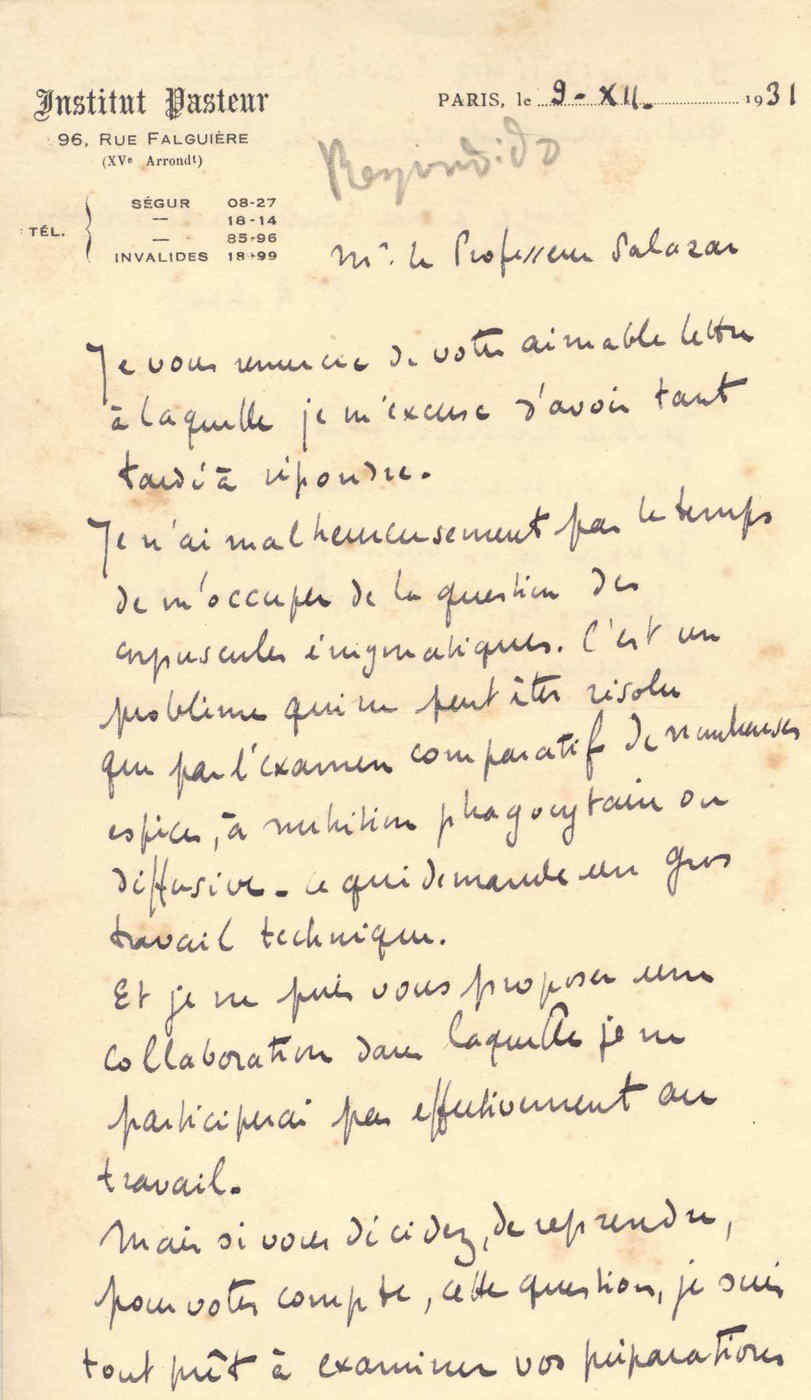 Institut Pasteur
96, RUE FALGUIÈRE
(XVe Arrondt)
PARIS, le 9-XII. 1931
Respondido
TÉL. SÉGUR 08-27
— 18-14
— 85-96
INVALIDES 18-99
Mr. le Professeur Salazar
Je vous remercie de votre aimable lettre
à laquelle je m'excuse d'avoir tant
tardé à répondre.
Je n'ai malheureusement pas le temps
de m'occuper de la question des
corpuscules énigmatiques. C'est un
problème qui ne peut être résolu
que par l'examen comparatif de nombreuses
espèces, à nutrition phagocytaire ou
diffusive - ce qui demande un gros
travail technique.
Et je ne puis vous proposer une
collaboration dans laquelle je ne
participerai pas effectivement au
travail.
Mais si vous décidez, de reprendre,
pour votre compte, cette question, je suis
tout prêt à examiner vos préparations